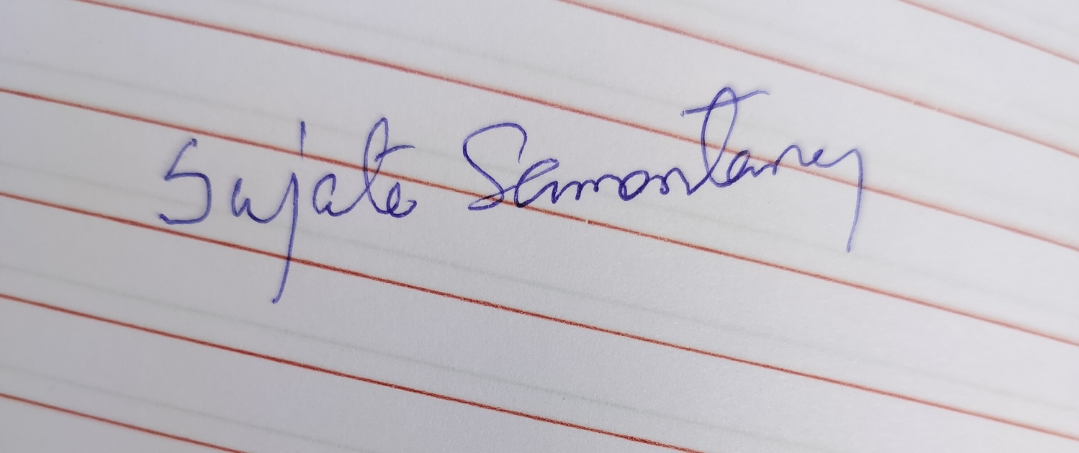 Sujata Samantaray